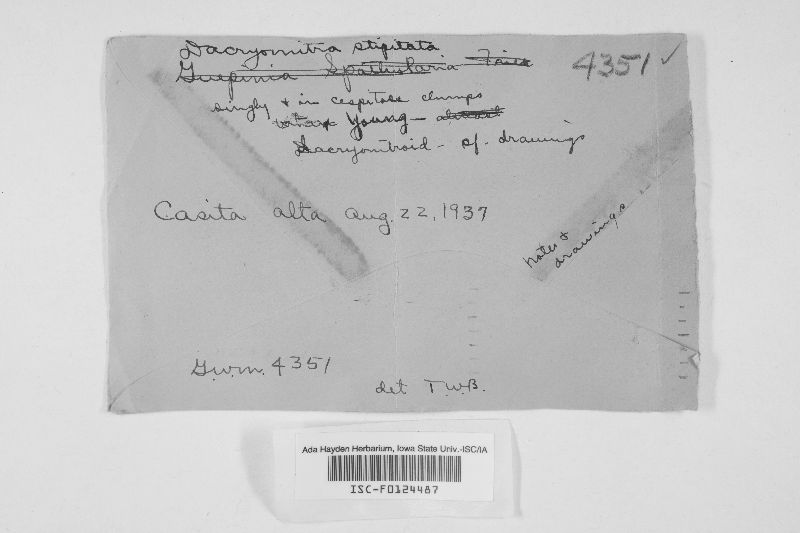 Dacryomitra stipitata
Guepinia Spathularia Fries
4351 ✓
singly + in cespitose clumps
Young —
Dacryomitroid - cf. drawings
Casita alta Aug. 22, 1937
notes +
drawings
G.W.M. 4351
det T.W.B.
Ada Hayden Herbarium, Iowa State Univ.-ISC/IA
ISC-F0124487